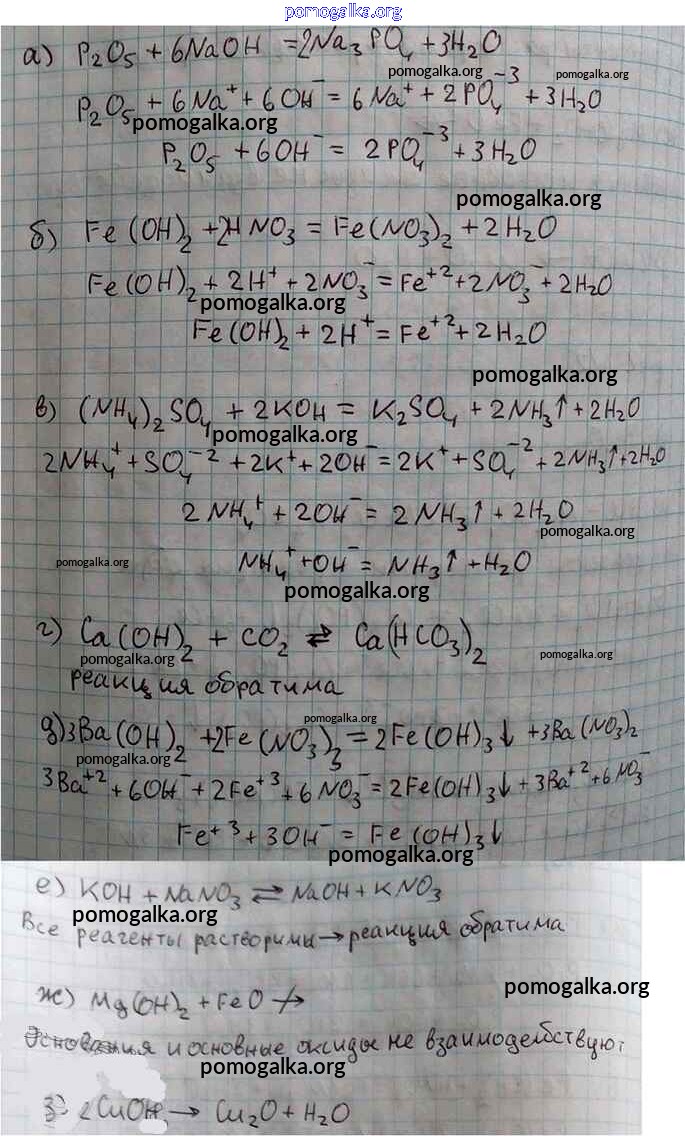 pomogalka.org
а) P₂O₅ + 6NaOH = 2Na₃PO₄ + 3H₂O
pomogalka.org pomogalka.org
P₂O₅ + 6Na⁺ + 6OH⁻ = 6Na⁺ + 2PO₄⁻³ + 3H₂O
pomogalka.org
P₂O₅ + 6OH⁻ = 2PO₄⁻³ + 3H₂O
pomogalka.org
б) Fe(OH)₂ + 2HNO₃ = Fe(NO₃)₂ + 2H₂O
Fe(OH)₂ + 2H⁺ + 2NO₃⁻ = Fe⁺² + 2NO₃⁻ + 2H₂O
pomogalka.org
Fe(OH)₂ + 2H⁺ = Fe⁺² + 2H₂O
pomogalka.org
в) (NH₄)₂SO₄ + 2KOH = K₂SO₄ + 2NH₃↑ + 2H₂O
pomogalka.org
2NH₄⁺ + SO₄⁻² + 2K⁺ + 2OH⁻ = 2K⁺ + SO₄⁻² + 2NH₃↑ + 2H₂O
2NH₄⁺ + 2OH⁻ = 2NH₃↑ + 2H₂O
pomogalka.org
pomogalka.org
NH₄⁺ + OH⁻ = NH₃↑ + H₂O
pomogalka.org
г) Ca(OH)₂ + CO₂ ⇄ Ca(HCO₃)₂
pomogalka.org pomogalka.org
реакция обратима
pomogalka.org
д) 3Ba(OH)₂ + 2Fe(NO₃)₃ = 2Fe(OH)₃↓ + 3Ba(NO₃)₂
pomogalka.org
3Ba⁺² + 6OH⁻ + 2Fe⁺³ + 6NO₃⁻ = 2Fe(OH)₃↓ + 3Ba⁺² + 6NO₃⁻
Fe⁺³ + 3OH⁻ = Fe(OH)₃↓
pomogalka.org
е) KOH + NaNO₃ ⇄ NaOH + KNO₃
pomogalka.org
Все реагенты растворимы → реакция обратима
pomogalka.org
ж) Mg(OH)₂ + FeO ↛
Основания и основные оксиды не взаимодействую
pomogalka.org
з) 2CuOH → Cu₂O + H₂O